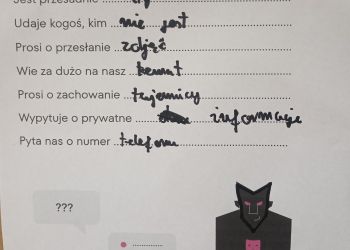 Jest przesadnie
Udaje kogoś, kim nie jest
Prosi o przesłanie zdjęć
Wie za dużo na nasz temat
Prosi o zachowanie tajemnicy
Wypytuje o prywatne informacje
Pyta nas o numer telefonu
???